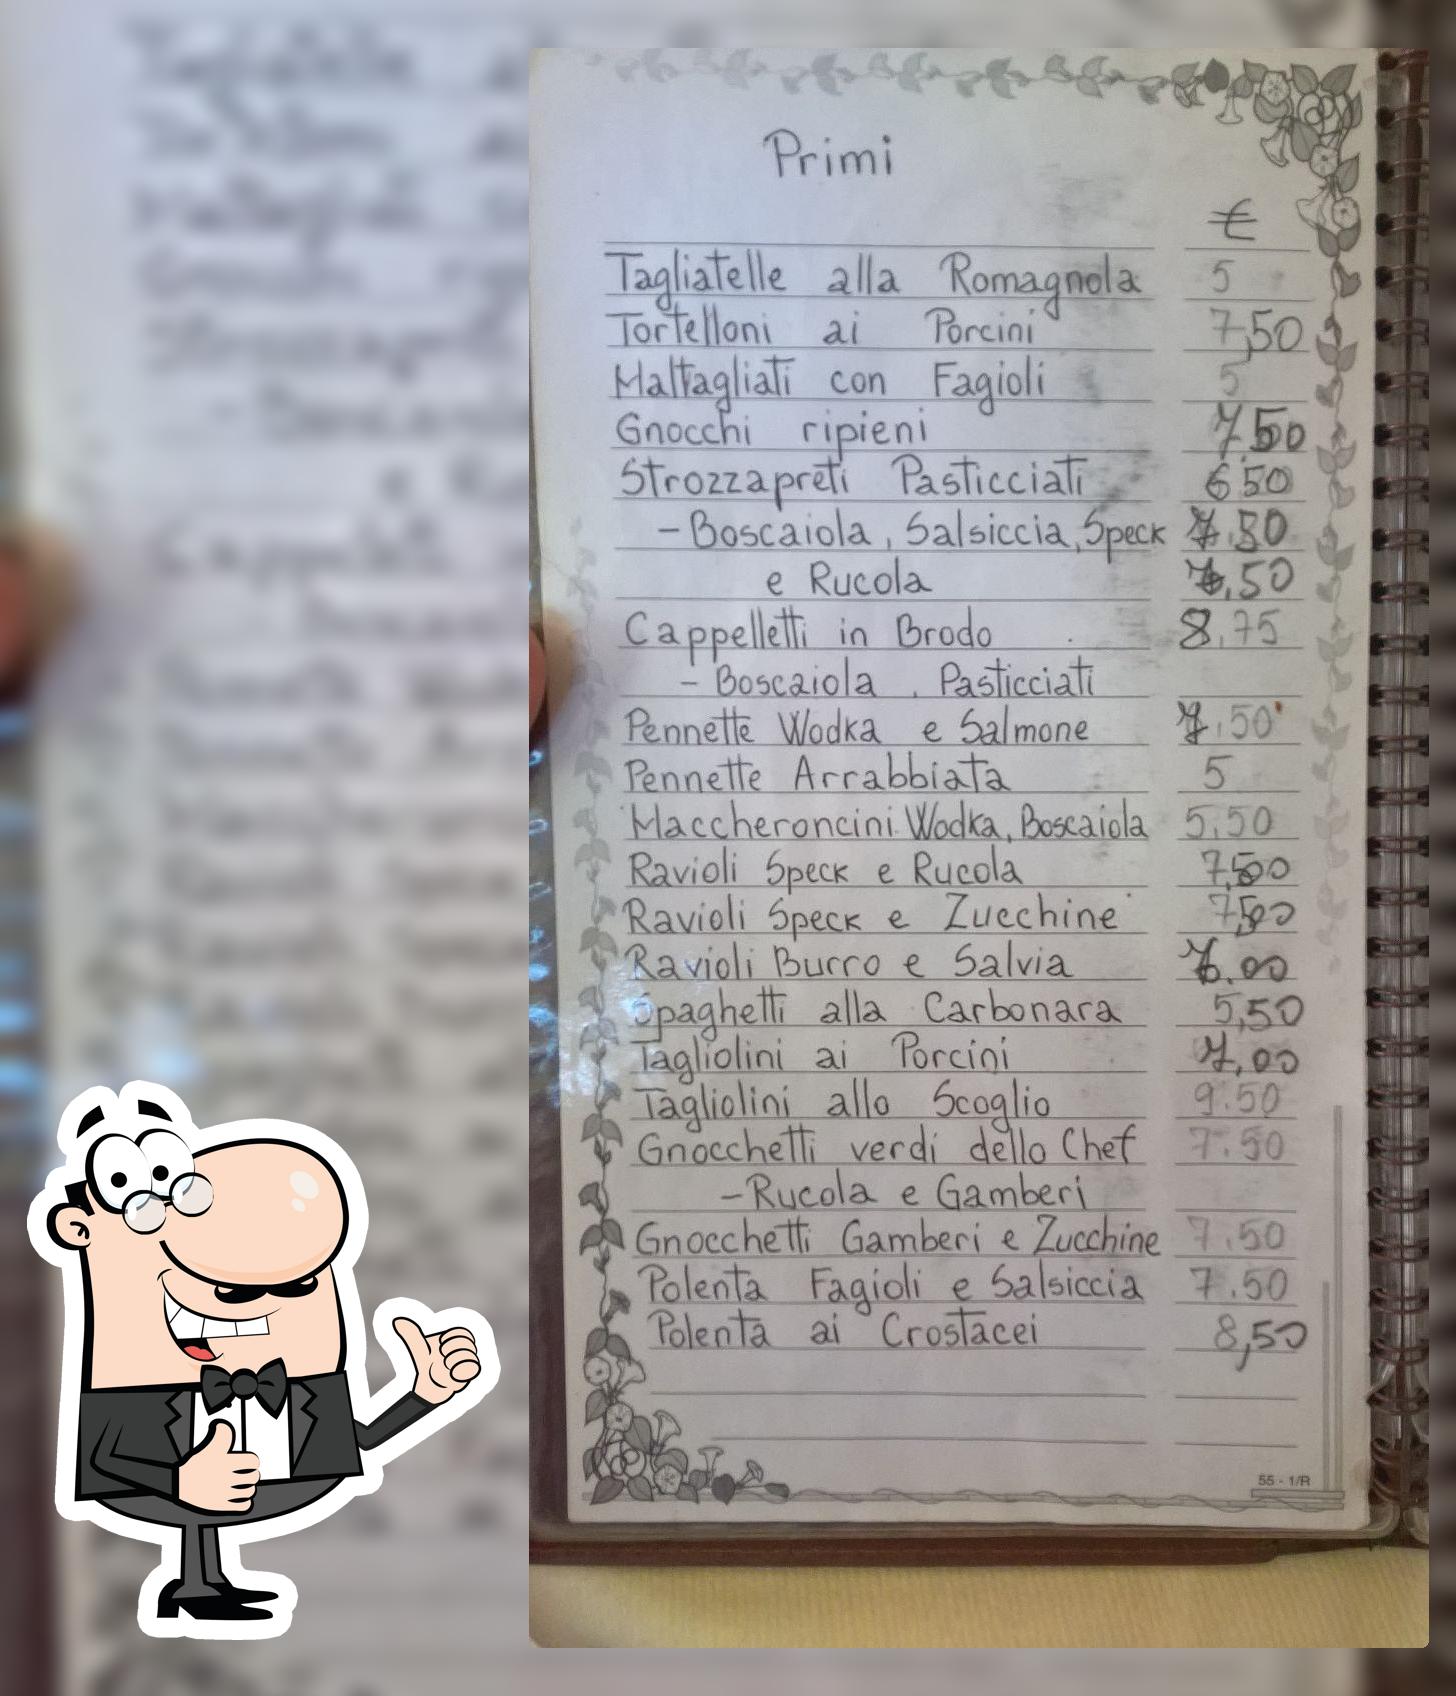 Primi
€
Tagliatelle alla Romagnola 5
Tortelloni ai Porcini 7,50
Maltagliati con Fagioli 5
Gnocchi ripieni 7,50
Strozzapreti Pasticciati 6,50
- Boscaiola, Salsiccia, Speck
e Rucola
Cappelletti in Brodo 8,75
- Boscaiola, Pasticciati
Pennette Wodka e Salmone
Pennette Arrabbiata 5
Maccheroncini Wodka, Boscaiola 5,50
Ravioli Speck e Rucola 7,50
Ravioli Speck e Zucchine 7,50
Ravioli Burro e Salvia
Spaghetti alla Carbonara 5,50
Tagliolini ai Porcini 7,00
Tagliolini allo Scoglio 9.50
Gnocchetti verdi dello Chef 7.50
- Rucola e Gamberi
Gnocchetti Gamberi e Zucchine 7.50
Polenta Fagioli e Salsiccia 7.50
Polenta ai Crostacei 8,50
55 - 1/R